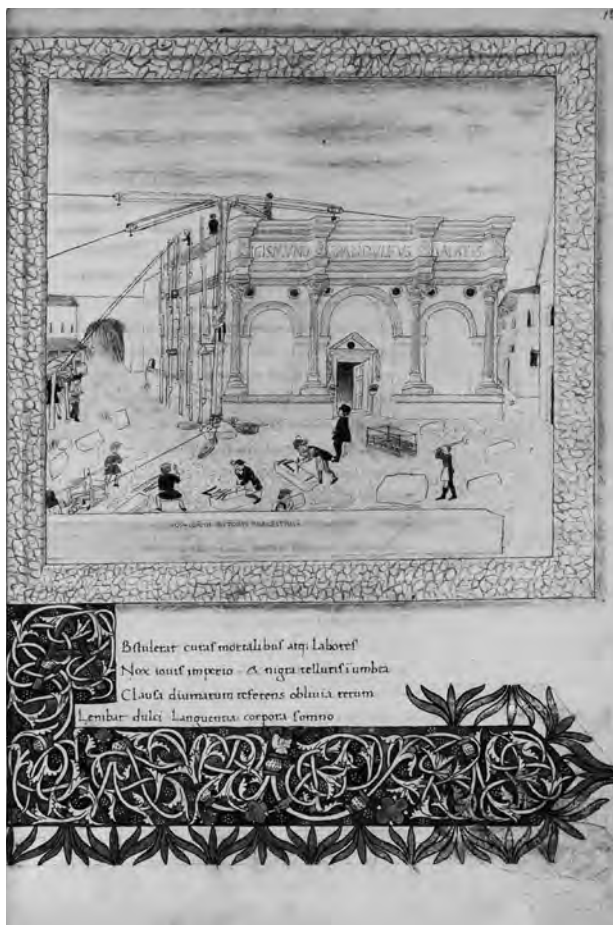 PANDVLFVS
Bstulerat curas mortalibus atq; Labores
Nox iouis imperio & nigra telluris i umbra
Clausa diurnarum referens obliuia rerum
Lenibat dulci Languentia corpora somno